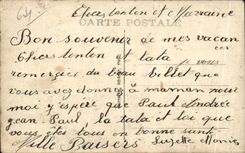 Cher tonton et Marraine
CARTE POSTALE
Bon souvenir de mes vacan
ces
Cher tonton et tata je vous
remerciez du beau billet que
vous avez donner a maman nous
moi y espère que Paul Andrée
jean-Paul, la tata et toi que
vous êtes tous en bonne santé
Mille Baisers Suzette